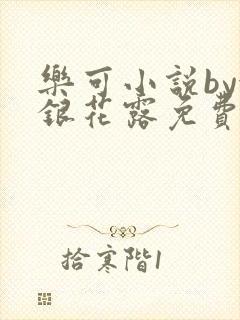 樂可小説by
銀花露免費
拾寒階1